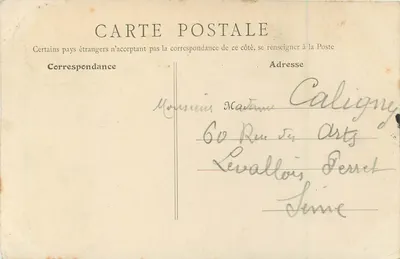 CARTE POSTALE
Certains pays étrangers n'acceptant pas la correspondance de ce côté, se renseigner à la Poste
Correspondance
Adresse
Monsieur Madame Caligny
60 Rue des Arts
Levallois Perret
Seine